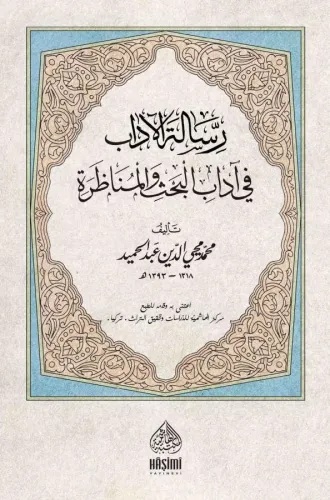 رِسَالَةُ الآدَابِ
فِي آدَابِ البَحْثِ وَالمُنَاظَرَةِ
تَأْلِيفُ
محمد محيي الدين عبد الحميد
١٣١٨ – ١٣٩٣ هـ
اعتنى به وقدمه للطبع
مركز الهاشمية للدراسات وتحقيق التراث، تركيا.
HÂŞİMİ
YAYINEVİ